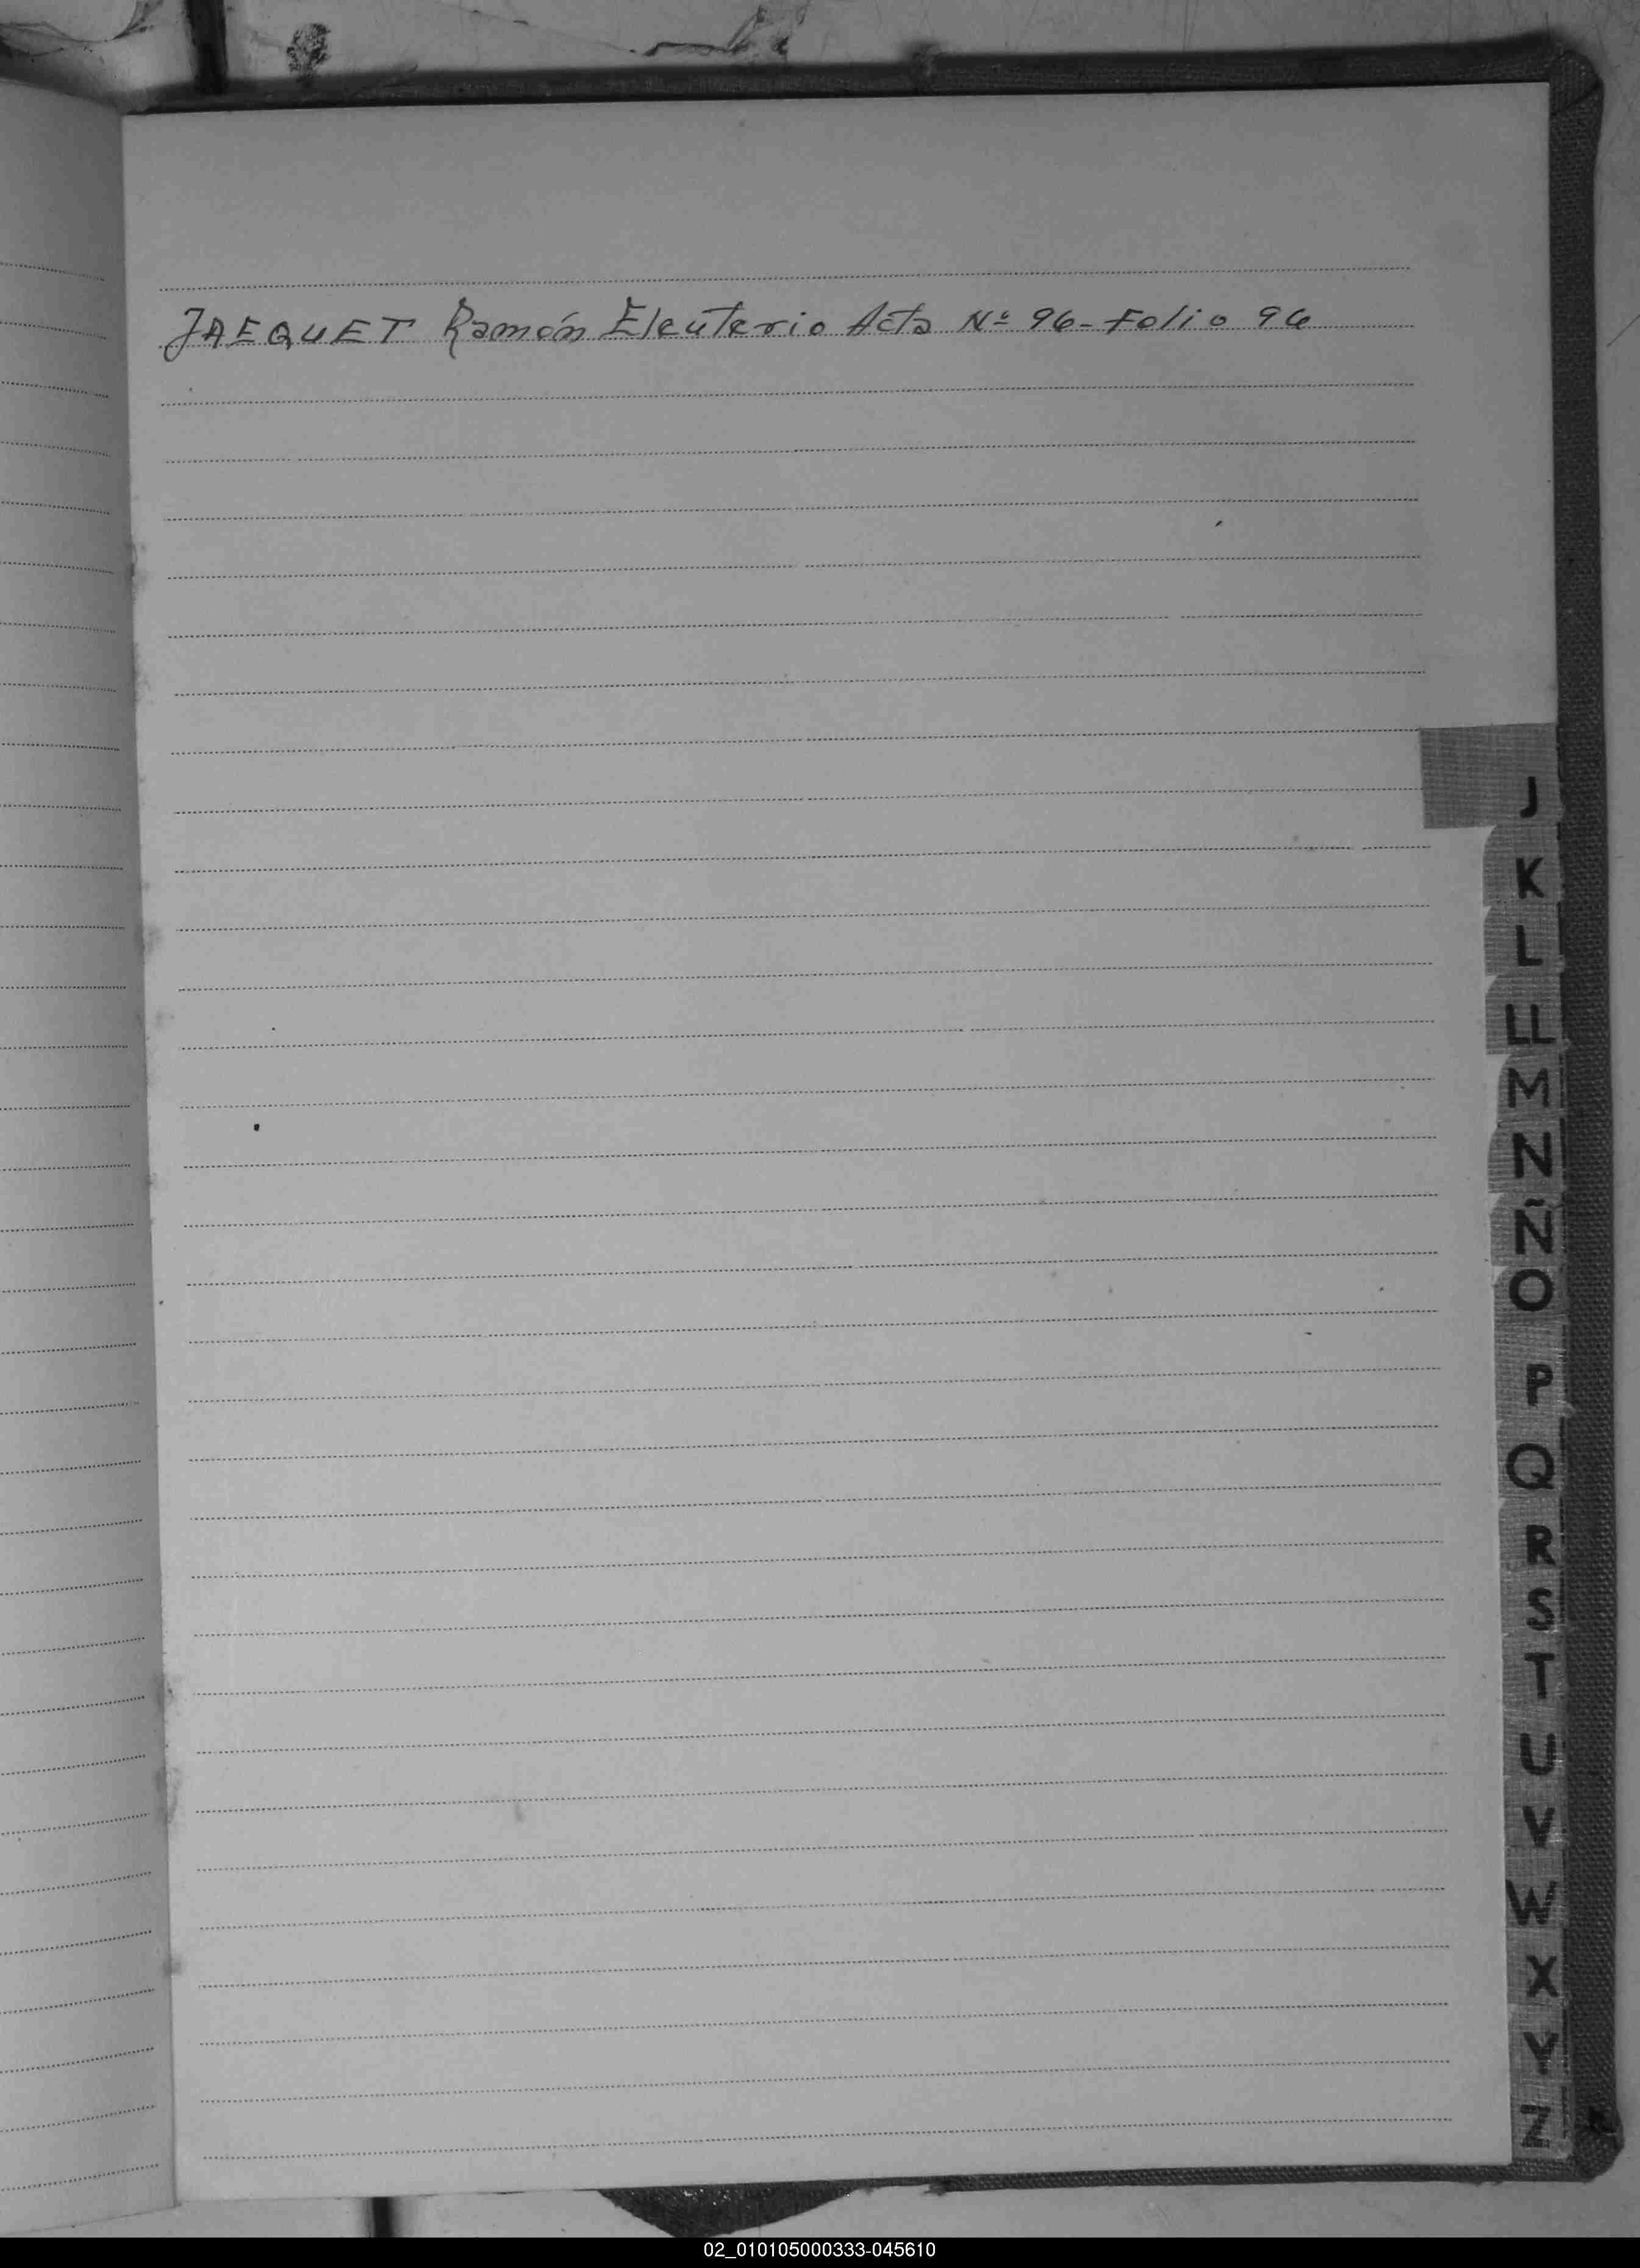 JAEQUET Ramón Eleuterio Acta Nº 96- Folio 96
J
K
L
LL
M
N
Ñ
O
P
Q
R
S
T
U
V
W
X
Y
Z
02_010105000333-045610